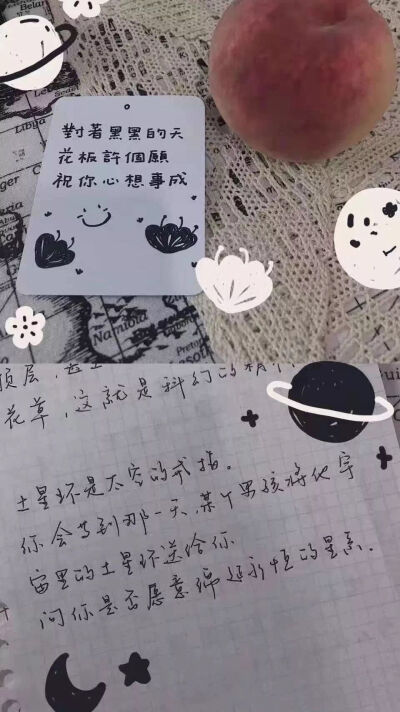 Belar
Libya
對著黑黑的天
花板許個願
祝你心想事成
Namibia
Pretor
花草，这就是科幻的精
土星环是太空的戒指。
你会等到那一天，某个男孩将他宇
宙里的土星环送给你
问你是否愿意绵延永恒的星系.